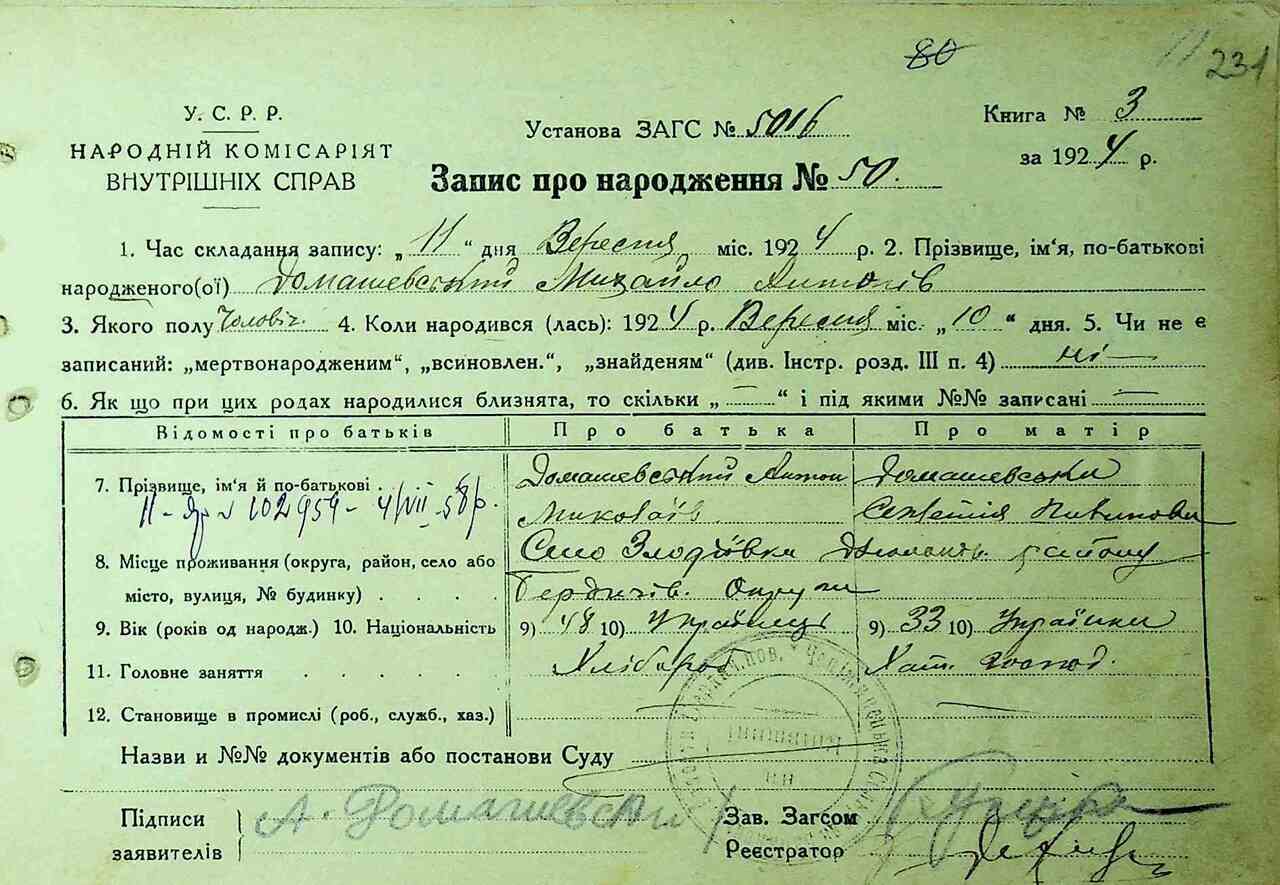 80
231
У. С. Р. Р.
НАРОДНІЙ КОМІСАРІЯТ
ВНУТРІШНІХ СПРАВ
Установа ЗАГС № 5016
Книга № 3
за 1924 р.
Запис про народження № 50.
1. Час складання запису: „11“ дня Вересня міс. 1924 р. 2. Прізвище, ім‘я, по-батькові
народженого(ої) Домашевський Михайло Антонів
3. Якого полу Чоловіч. 4. Коли народився (лась): 1924 р. Вересня міс. „10“ дня. 5. Чи не є
записаний: „мертвонародженим“, „всиновлен.“, „знайденям“ (див. Інстр. розд. III п. 4) ні —
6. Як що при цих родах народилися близнята, то скільки „ — “ і під якими №№ записані —
Відомості про батьків Про батька Про матір
7. Прізвище, ім‘я й по-батькові . Домашевський Антон Домашевська
102959 - 4/VII - 58р. Миколаїв
8. Місце проживання (округа, район, село або Село Злодіївка району
місто, вулиця, № будинку) . . . . Бердичів. Округи
9. Вік (років од народж.) 10. Національність 9) 48 10) Українець 9) 33 10) Українка
11. Головне заняття . . . . . . Хлібороб Хат. господ.
12. Становище в промислі (роб., служб., хаз.)
Назви и №№ документів або постанови Суду
Підписи А. Домашевский Зав. Загсом
заявителів Реєстратор